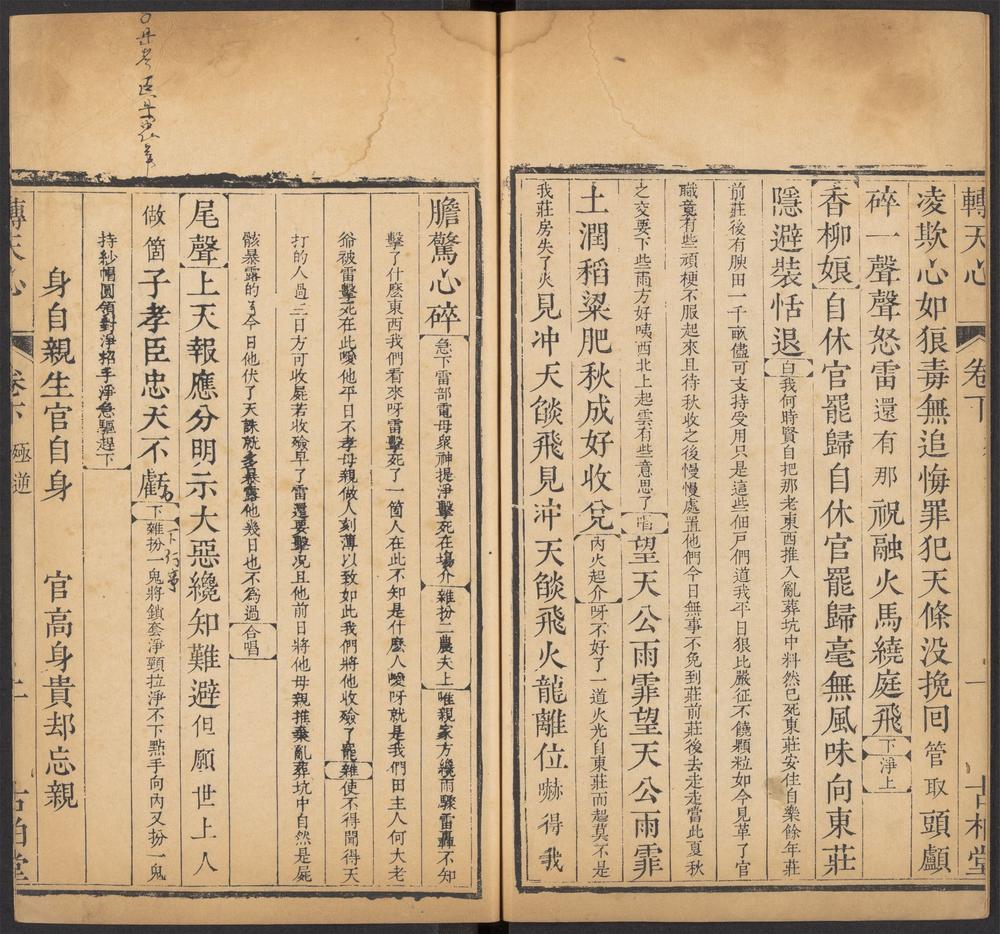 轉天心 卷下 一 古柏堂
凌欺心如狼毒無追悔罪犯天條没挽囘管取頭顱
碎一聲聲怒雷還有那祝融火馬繞庭飛下淨上
香柳娘自休官罷歸自休官罷歸毫無風味向東莊
隱避裝恬退白我何時賢自把那老東西推入亂葬坑中料然已死東莊安住自樂餘年莊
前莊後有腴田一千畝儘可支持受用只是這些佃戸們道我平日狠比嚴征不饒顆粒如今見革了官
職竟有些頑梗不服起來且待秋收之後慢慢處置他們今日無事不免到莊前莊後去走走當此夏秋
之交要下些雨方好咦西北上起雲有些意思了唱望天公雨霏望天公雨霏
土潤稻粱肥秋成好收兌內火起介呀不好了一道火光自東莊而起莫不是
我莊房失了火見冲天燄飛見冲天燄飛火龍離位嚇得我
膽驚心碎急下雷部電母衆神提淨擊死在場介雜扮二農夫上唯親家方纔雨驟雷轟不知
擊了什麽東西我們看來呀雷擊死了一箇人在此不知是什麽人噯呀就是我們田主人何大老
爺被雷擊死在此噯他平日不孝母親做人刻薄以致如此我們將他收殮了罷雜使不得聞得天
打的人過三日方可收屍若收殮早了雷還要擊况且他前日將他母親推棄亂葬坑中自然是屍
骸暴露的了今日他伏了天誅就多暴露他幾日也不爲過合唱
尾聲上天報應分明示大惡纔知難避但願世上人
做箇子孝臣忠天不虧下雜扮一鬼將鎖套淨頸拉淨不下點手向內又扮一鬼
下行
持紗帽圓領對淨招手淨急驅趕下
身自親生官自身 官高身貴却忘親
轉天心 卷下 極逆 古柏堂